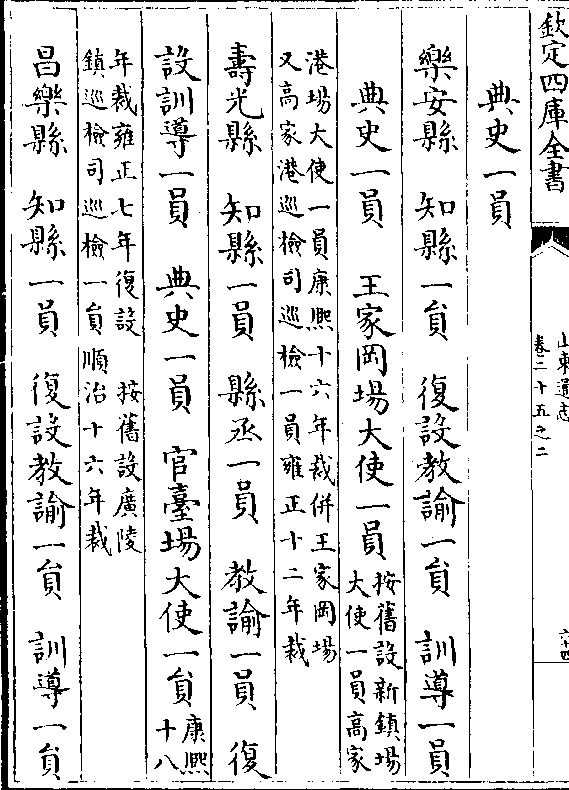 欽定四庫全書
山東通志
卷二十五之二
六十四
典史一員
樂安縣 知縣一員 復設教諭一員 訓導一員
典史一員 王家岡場大使一員 按舊設新鎮場
大使一員高家
港場大使一員康熙十六年裁併王家岡場
又高家港巡檢司巡檢一員雍正十二年裁
壽光縣 知縣一員 縣丞一員 教諭一員 復
設訓導一員 典史一員 官臺場大使一員 康熙
十八
年裁雍正七年復設 按舊設廣陵
鎮巡檢司巡檢一員順治十六年裁
昌樂縣 知縣一員 復設教諭一員 訓導一員